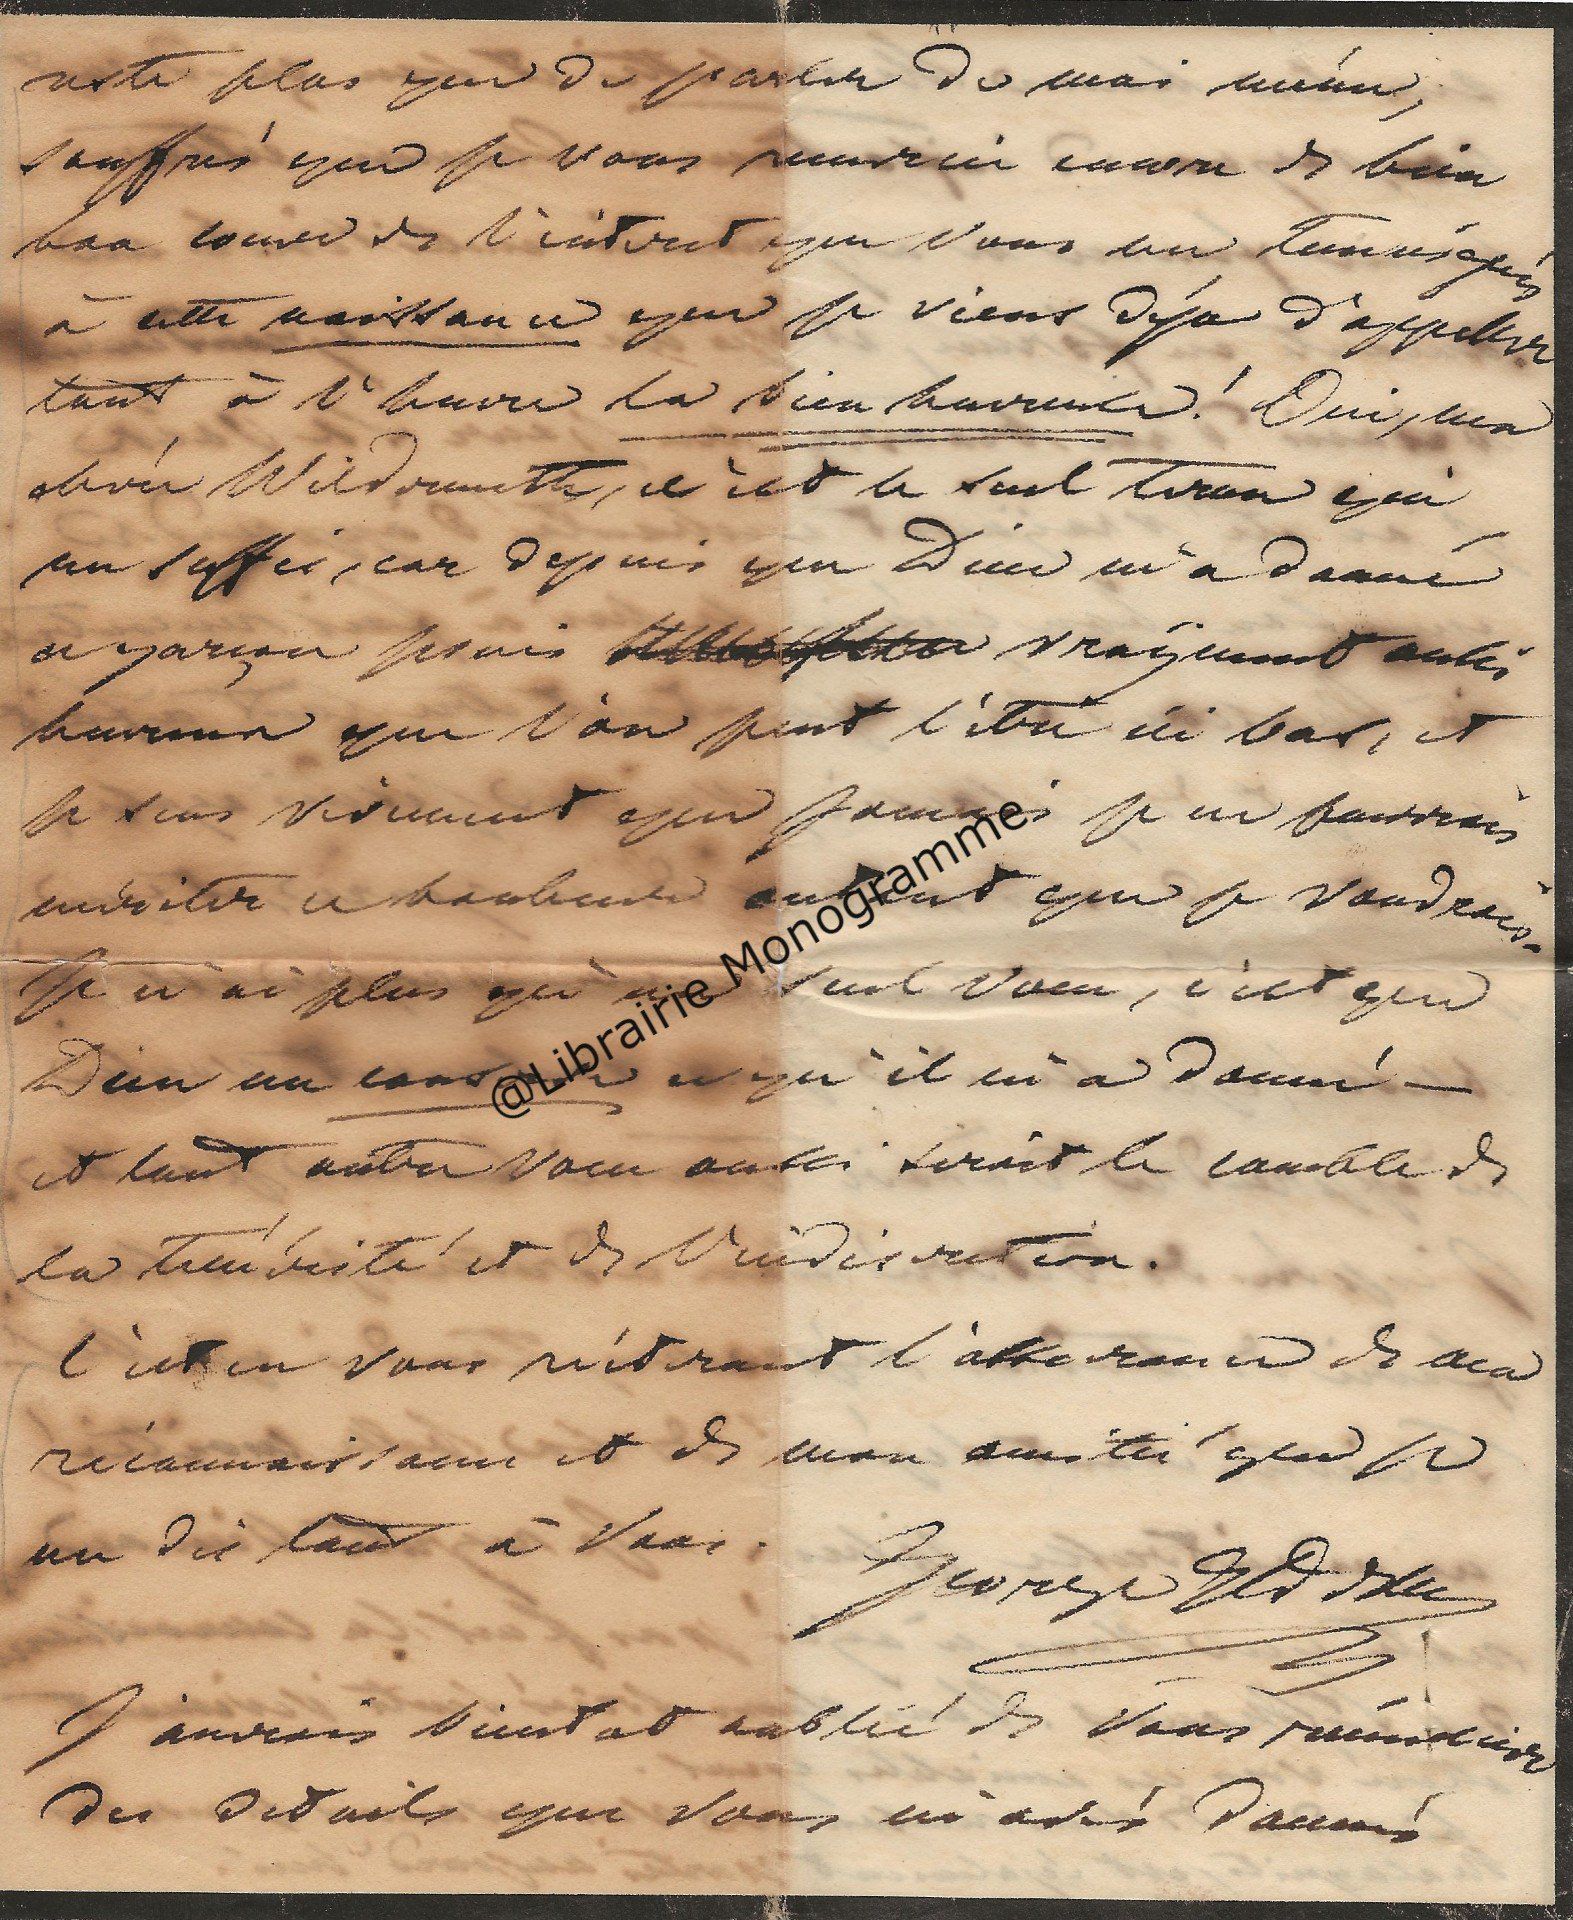 reste plus que de parler de moi même,
souffrés que je vous remercie encore de bien
bon coeur de l'intéret que vous me temoignés
à cette naissance que je viens déja d'appeller
tout à l'heure la bien heureuse! Oui, ma
chère Wildermeth, c'est le seul terme qui
me suffis, car depuis que Dieu m'a donné
ce garçon je suis vrayement aussi
heureux que l'on peut l'être ici bas, et
je sens vivement que jamais je ne pourrois
mériter ce bonheur autant que je voudrois.
Je n'ai plus qu'un seul voeu, c'est que
Dieu me conserve ce qu'il m'a donné —
et tout autre voeu aussi seroit le comble de
la témérité et de l'indiscretion.
C'est en vous réiterant l'assurance de ma
réconnoissance et de mon amitié que je
me dis tout à Vous.
George
J'aurois bientot oublié de Vous remercier
des details que vous m'avés donnés
@Librairie Monogramme